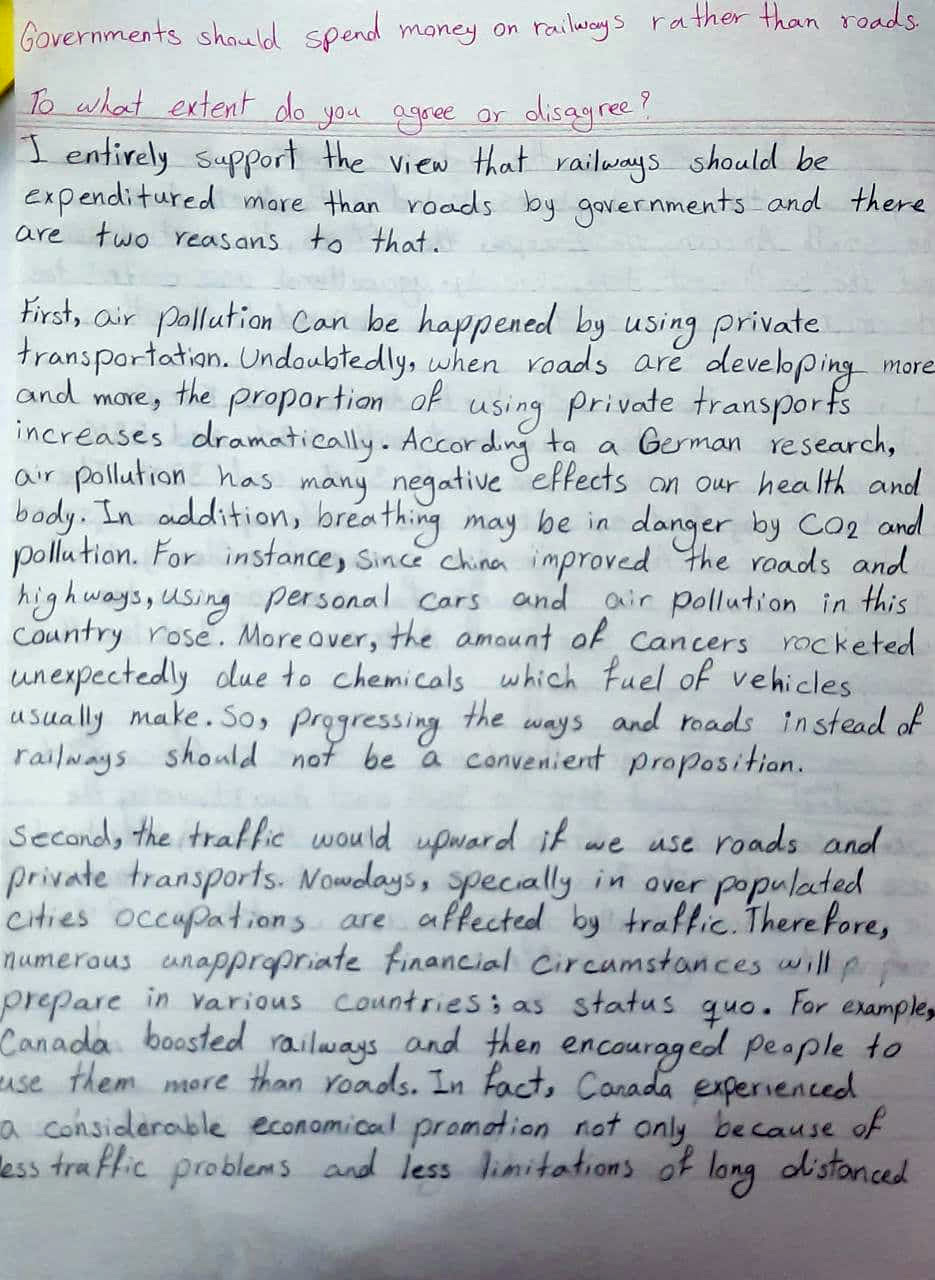 Governments should spend money on railways rather than roads.
To what extent do you agree or disagree?
I entirely support the view that railways should be
expenditured more than roads by governments and there
are two reasons to that.
First, air pollution can be happened by using private
transportation. Undoubtedly, when roads are developing more
and more, the proportion of using private transports
increases dramatically. According to a German research,
air pollution has many negative effects on our health and
body. In addition, breathing may be in danger by CO2 and
pollution. For instance, since china improved the roads and
highways, using personal cars and air pollution in this
country rose. Moreover, the amount of cancers rocketed
unexpectedly due to chemicals which fuel of vehicles
usually make. So, progressing the ways and roads instead of
railways should not be a convenient proposition.
Second, the traffic would upward if we use roads and
private transports. Nowdays, specially in over populated
cities occupations are affected by traffic. Therefore,
numerous unappropriate financial circumstances will
prepare in various countries; as status quo. For example,
Canada boosted railways and then encouraged people to
use them more than roads. In fact, Canada experienced
a considerable economical promotion not only because of
less traffic problems and less limitations of long distanced